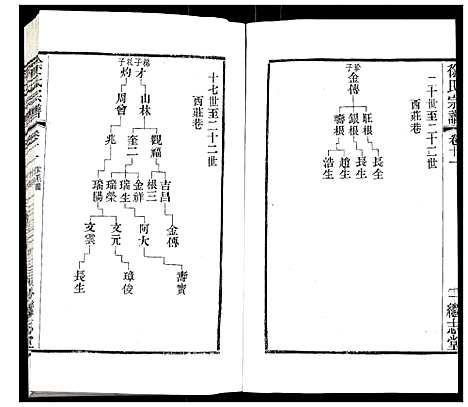 徐氏宗譜
卷十一
二十世至二十二世
西莊巷
金傳
旺根
銀根
壽根
長全
長生
趙生
浩生
十一
繼志堂
十七世至二十二世
西莊巷
才
灼
山林
周曾
觀福
奎二
兆
吉昌
根三
金祥
瑞生
瑞榮
瑞陽
金傳
阿大
文元
文雲
壽寶
璋俊
長生